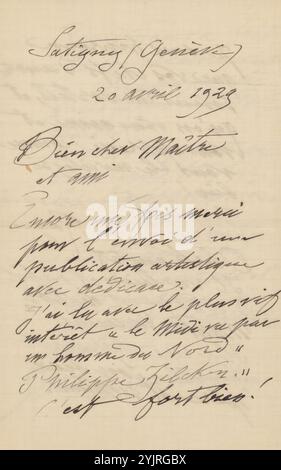 Satigny (Genève)
20 avril 1929
Bien cher Maître
et ami
Encore une fois merci
pour l'envoi d'une
publication artistique
avec dédicace.
J'ai lu avec le plus vif
intérêt "le Midi vu par
un homme du Nord"
Philippe Zilcken."
c'est fort bien!
alamy
Image ID: 2YJRGBX
www.alamy.com